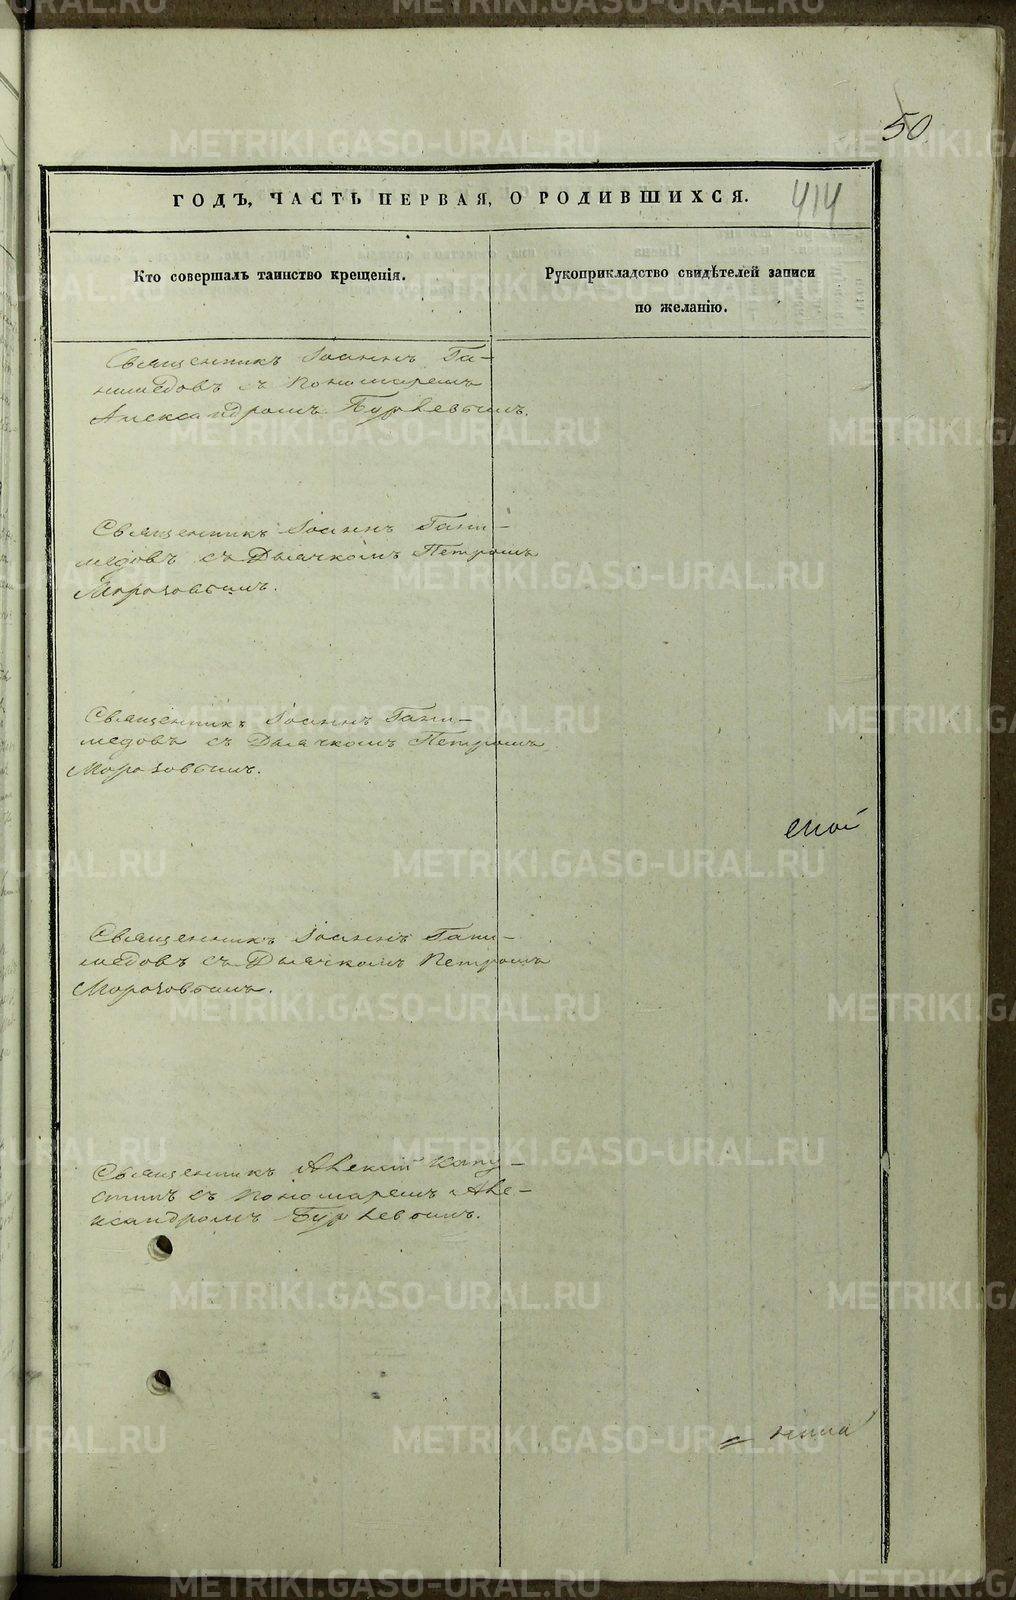 50.
ГОДЪ, ЧАСТЬ ПЕРВАЯ, О РОДИВШИХСЯ.
414
Кто совершалъ таинство крещенія.
Рукоприкладство свидѣтелей записи
по желанію.
Священникъ Іоаннъ Га-
нимедовъ съ Пономаремъ
Александромъ
Священникъ Іоаннъ Гани-
медовъ съ Дьячкомъ Петромъ
Морозовымъ.
Священникъ Іоаннъ Гани-
медовъ съ Дьячкомъ Петромъ
Морозовымъ.
Священникъ Іоаннъ Гани-
медовъ съ Дьячкомъ Петромъ
Морозовымъ.
Священникъ Капу-
стинъ съ Пономаремъ Але-
ксандромъ
METRIKI.GASO-URAL.RU